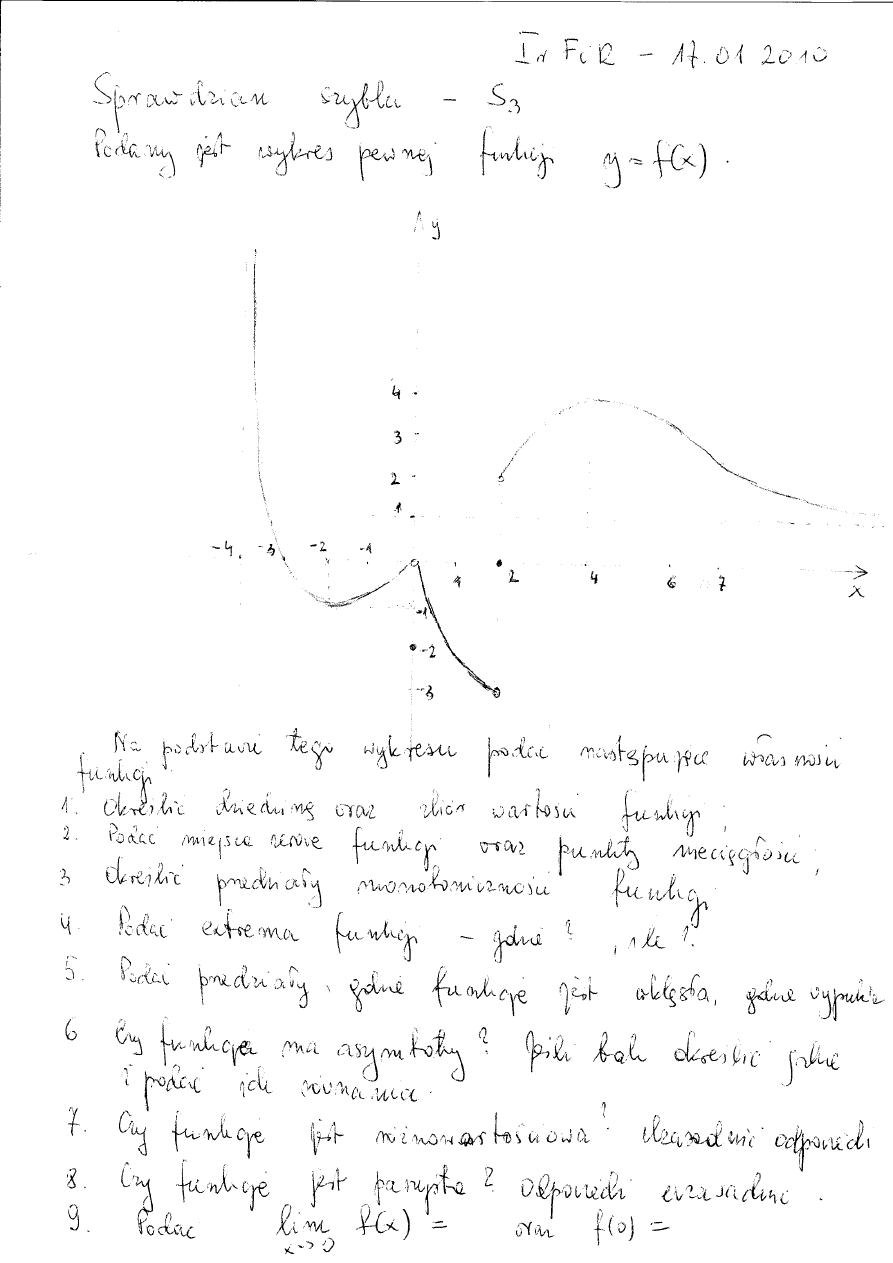 I r FiR - 17.01 2010
Sprawdzian szybki - S3
Podany jest wykres pewnej funkcji y = f(x).
y
4
3
2
1
-4 -3 -2 -1
1 2 4 6 7
x
-1
-2
-3
Na podstawie tego wykresu podać następujące własności
funkcji
1. Określić dziedzinę oraz zbiór wartości funkcji;
2. Podać miejsca zerowe funkcji oraz punkty nieciągłości;
3 Określić przedziały monotoniczności funkcji
4. Podać extrema funkcji - gdzie? , ile?
5. Podać przedziały, gdzie funkcja jest wklęsła, gdzie wypukła
6 Czy funkcja ma asymptoty? Jeśli tak określić jakie
i podać ich równania.
7. Czy funkcja jest różnowartościowa? Uzasadnić odpowiedź
8. Czy funkcja jest parzysta? Odpowiedź uzasadnić.
9. Podać lim f(x) = oraz f(0) =
x->0